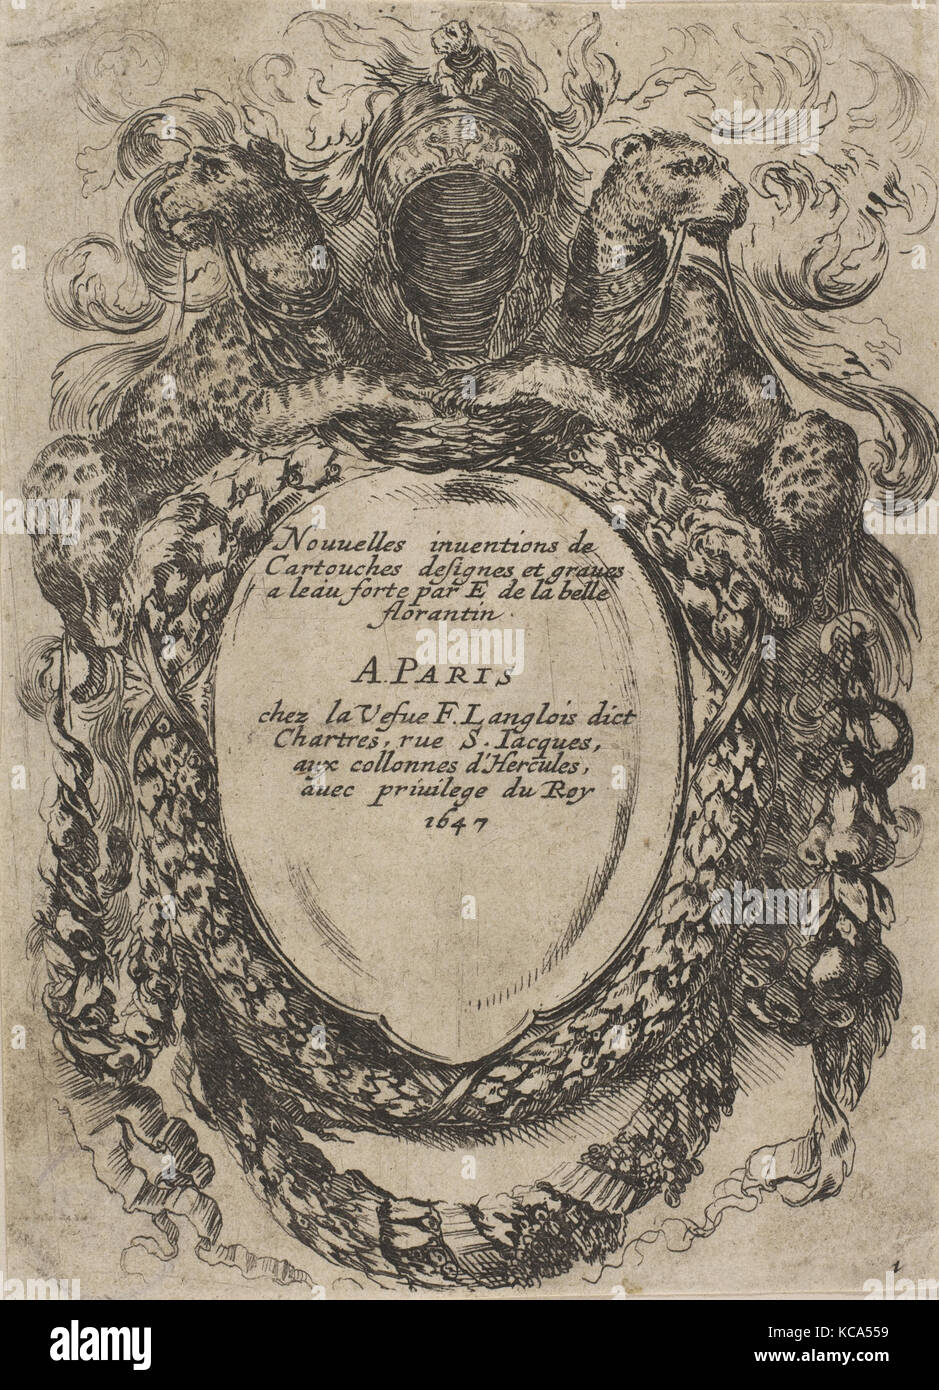 Nouuelles inuentions de
Cartouches designes et graues
a leau forte par E de la belle
florantin.
A.PARIS
chez la Vefue F. Langlois dict
Chartres, rue S. Iacques,
aux collonnes d'Hercules,
auec priuilege du Roy
1647
1
alamy stock photo
KCA559
www.alamy.com